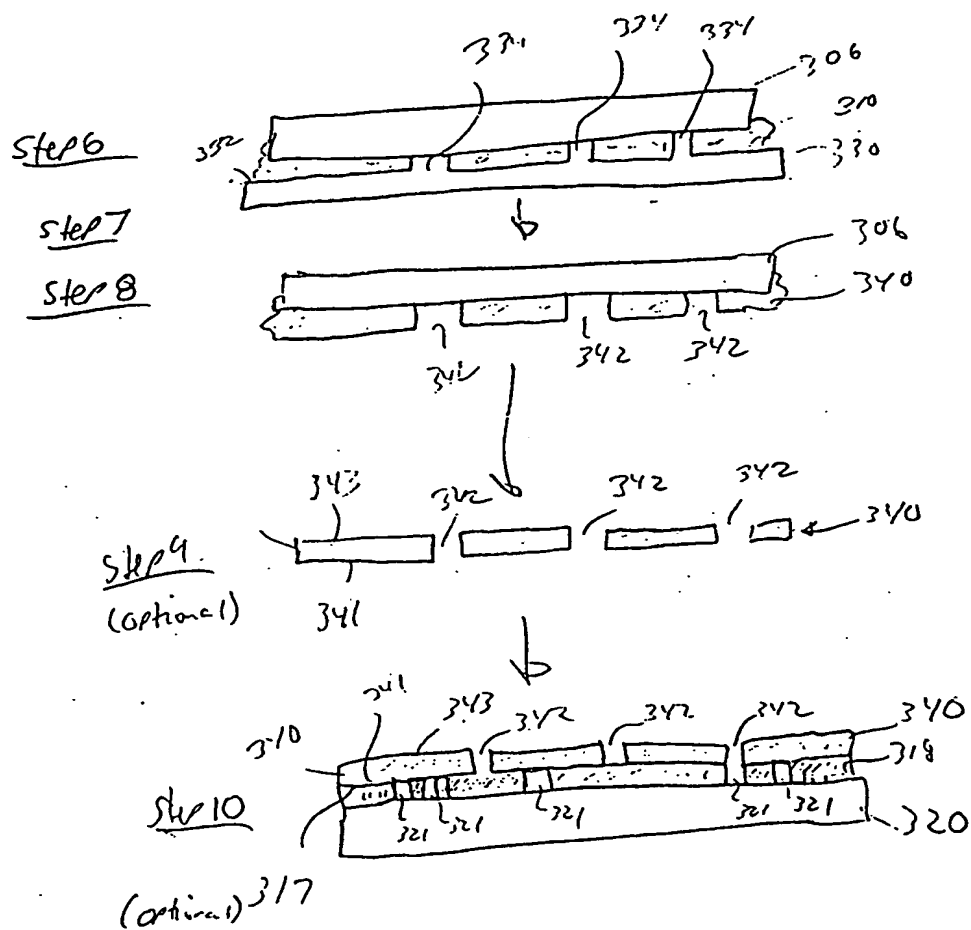 334 334 334
306
Step 6
332
310
330
Step 7
306
Step 8
340
342 342 342
343 342 342 342
340
Step 9
(optional)
341
341 343 342 342 342 340
310
318
Step 10
321 321 321 321 321
320
(optional) 317